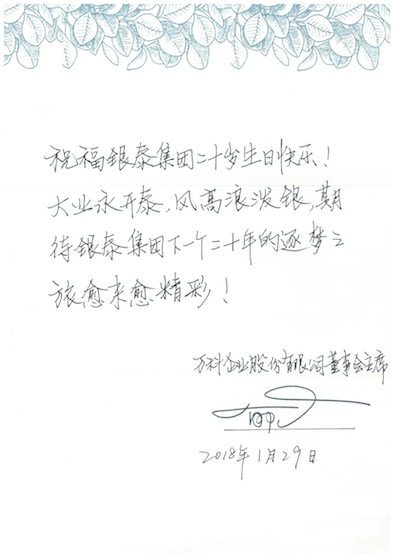 祝福银泰集团二十岁生日快乐！
大业永开泰，风高浪泼银，期
待银泰集团下一个二十年的逐梦之
旅愈来愈精彩！
万科企业股份有限公司董事会主席
2018年1月29日